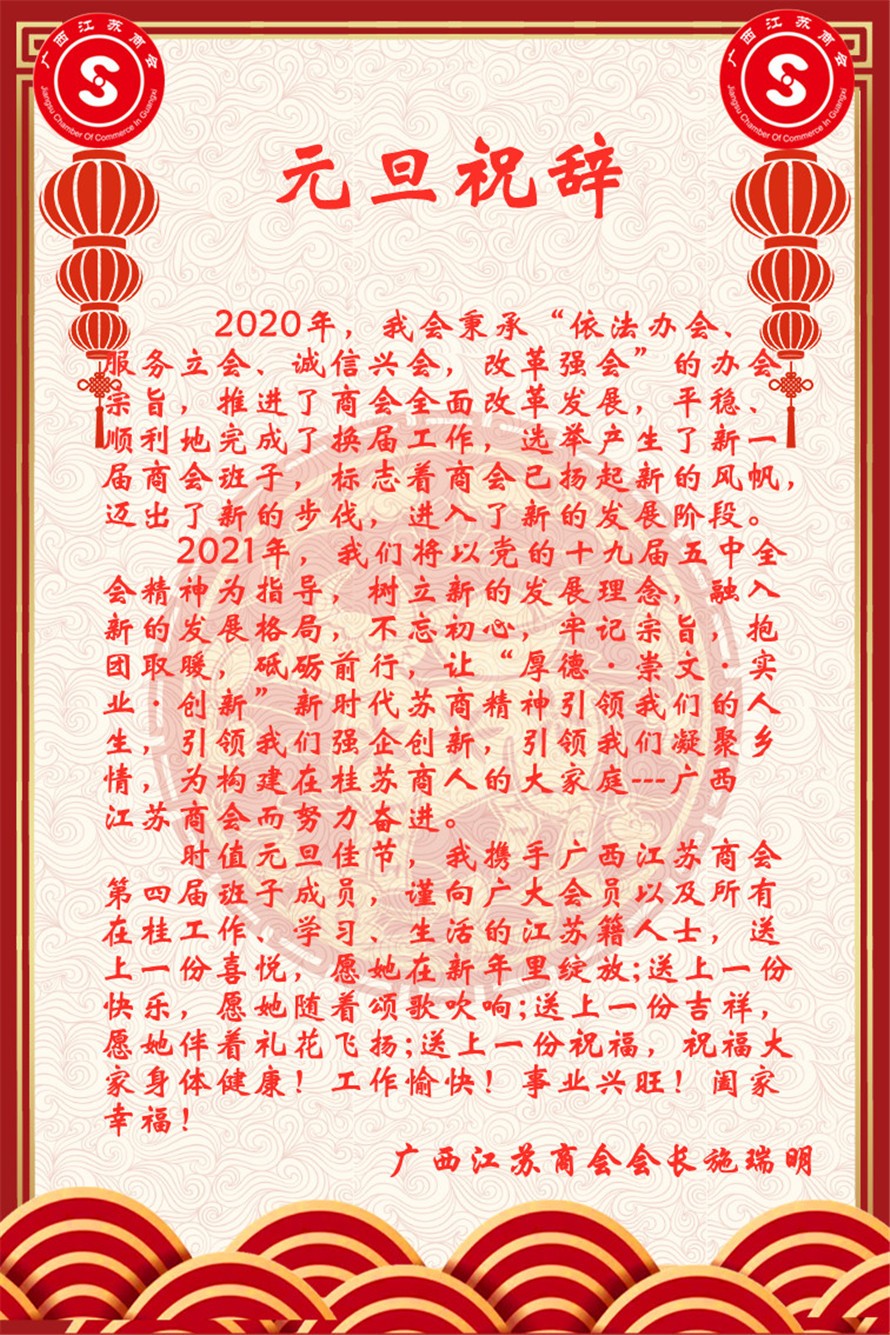 广西江苏商会
Jiangsu Chamber Of Commerce In Guangxi
广西江苏商会
Jiangsu Chamber Of Commerce In Guangxi
元旦祝辞
2020年，我会秉承“依法办会、
服务立会、诚信兴会，改革强会”的办会
宗旨，推进了商会全面改革发展，平稳、
顺利地完成了换届工作，选举产生了新一
届商会班子，标志着商会已扬起新的风帆，
迈出了新的步伐，进入了新的发展阶段。
2021年，我们将以党的十九届五中全
会精神为指导，树立新的发展理念，融入
新的发展格局，不忘初心，牢记宗旨，抱
团取暖，砥砺前行，让“厚德·崇文·实
业·创新”新时代苏商精神引领我们的人
生，引领我们强企创新，引领我们凝聚乡
情，为构建在桂苏商人的大家庭---广西
江苏商会而努力奋进。
时值元旦佳节，我携手广西江苏商会
第四届班子成员，谨向广大会员以及所有
在桂工作、学习、生活的江苏籍人士，送
上一份喜悦，愿她在新年里绽放;送上一份
快乐，愿她随着颂歌吹响;送上一份吉祥，
愿她伴着礼花飞扬;送上一份祝福，祝福大
家身体健康！工作愉快！事业兴旺！阖家
幸福！
广西江苏商会会长施瑞明